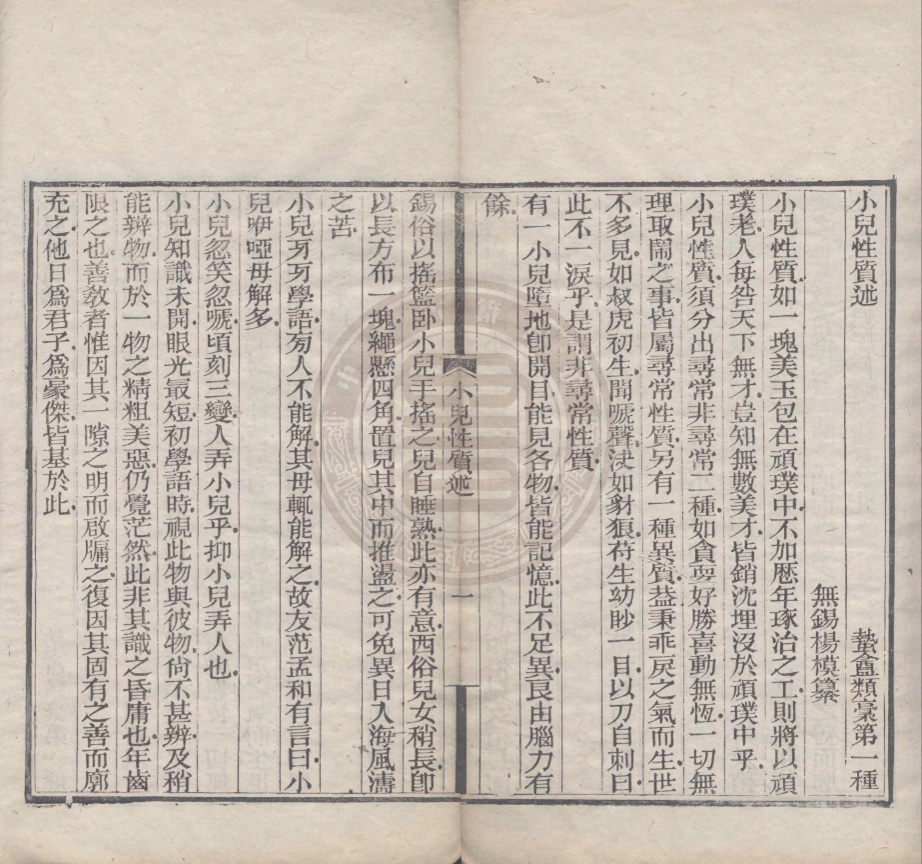 小兒性質述　蟄盦類稾第一種
無錫楊模纂
小兒性質如一塊美玉包在頑璞中不加歷年琢治之工則將以頑
璞老人每咎天下無才豈知無數美才皆銷沈埋沒於頑璞中乎
小兒性質須分出尋常非尋常二種如貪耍好勝喜動無恆一切無
理取鬧之事皆屬尋常性質另有一種異質益秉乖戾之氣而生世
不多見如叔虎初生聞嗁聲決如豺狼苻生幼眇一目以刀自刺曰
此不一淚乎是謂非尋常性質
有一小兒墮地卽開目能見各物皆能記憶此不足異良由腦力有
餘
小兒性質述　一
錫俗以搖籃卧小兒手搖之兒自睡熟此亦有意西俗兒女稍長卽
以長方布一塊繩懸四角置兒其中而推盪之可免異日入海風濤
之苦
小兒牙牙學語旁人不能解其母輒能解之故友范孟和有言曰小
兒咿啞母解多
小兒忽笑忽嗁頃刻三變人弄小兒乎抑小兒弄人也
小兒知識未開眼光最短初學語時視此物與彼物尙不甚辨及稍
能辨物而於一物之精粗美惡仍覺茫然此非其識之昏庸也年齒
限之也善敎者惟因其一隙之明而啟牖之復因其固有之善而廓
充之他日爲君子爲豪傑皆基於此